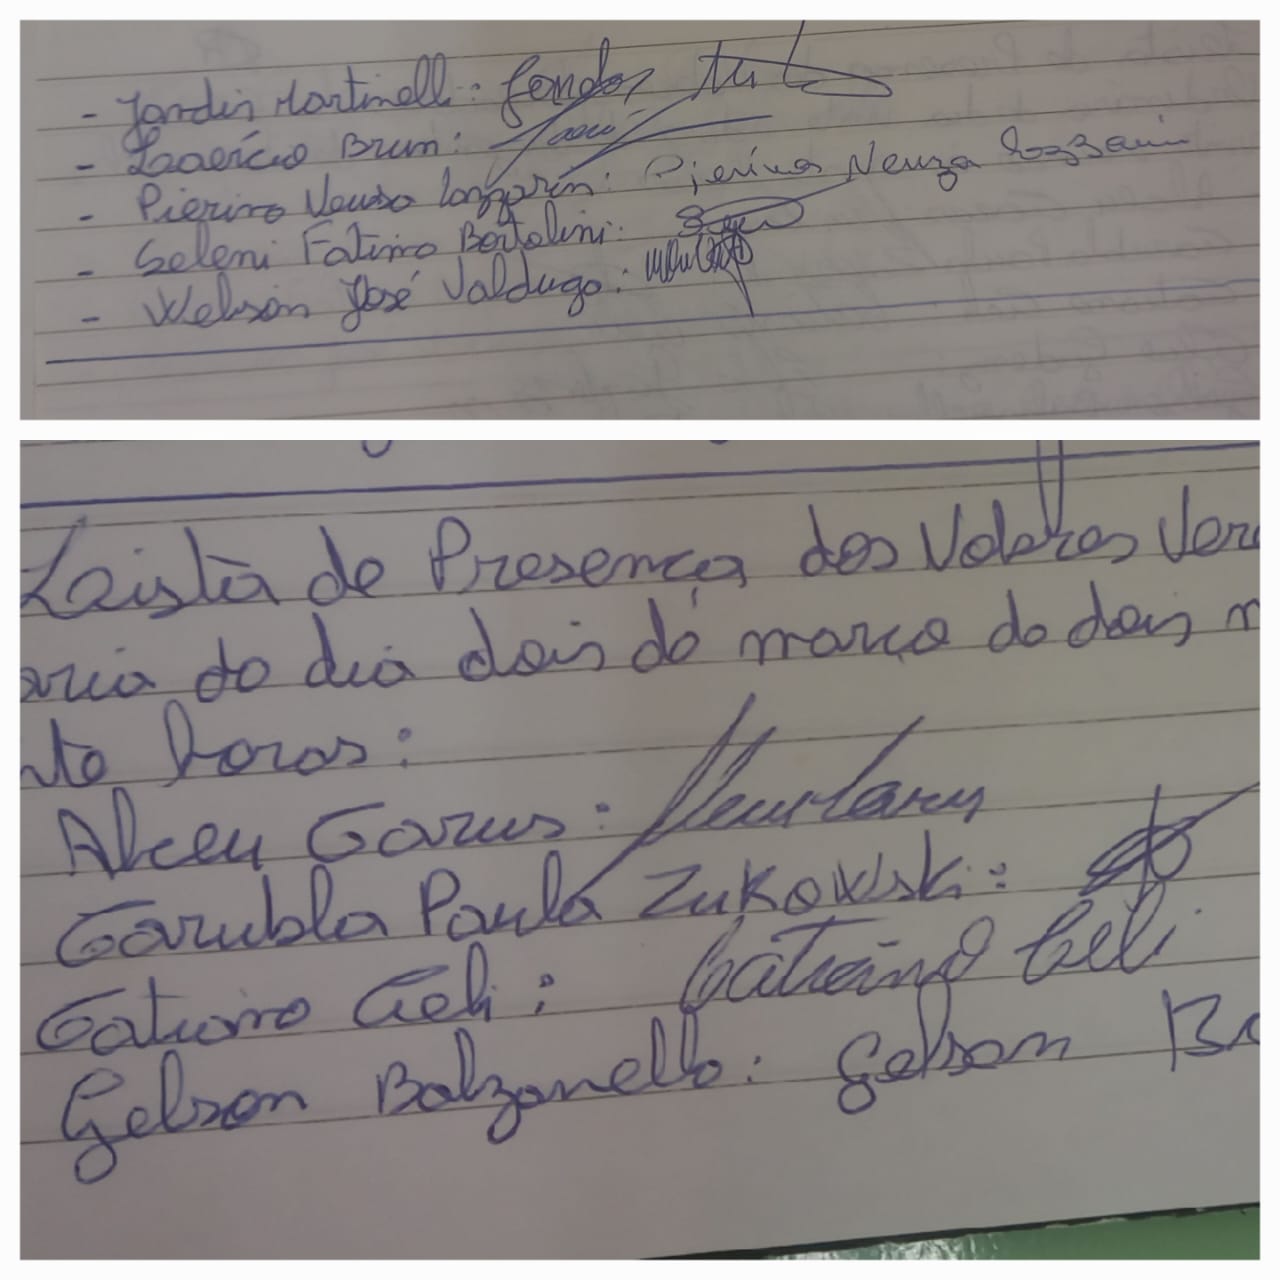 - Jandir Martinelli:
- Laércio Brum:
- Pierino Neuso Lazzarin: Pierino Neuza Lozzarin
- Seleni Fatima Bortolini:
- Welison José Valdugo:
Leista de Presença dos Vobres Vere
aria do dia dois de março de dois m
to horas:
Alceu Garus:
Garubla Paula Zukowski:
Gatiano Geli: Gatiano Geli
Gelson Balzanello: Gelson Ba